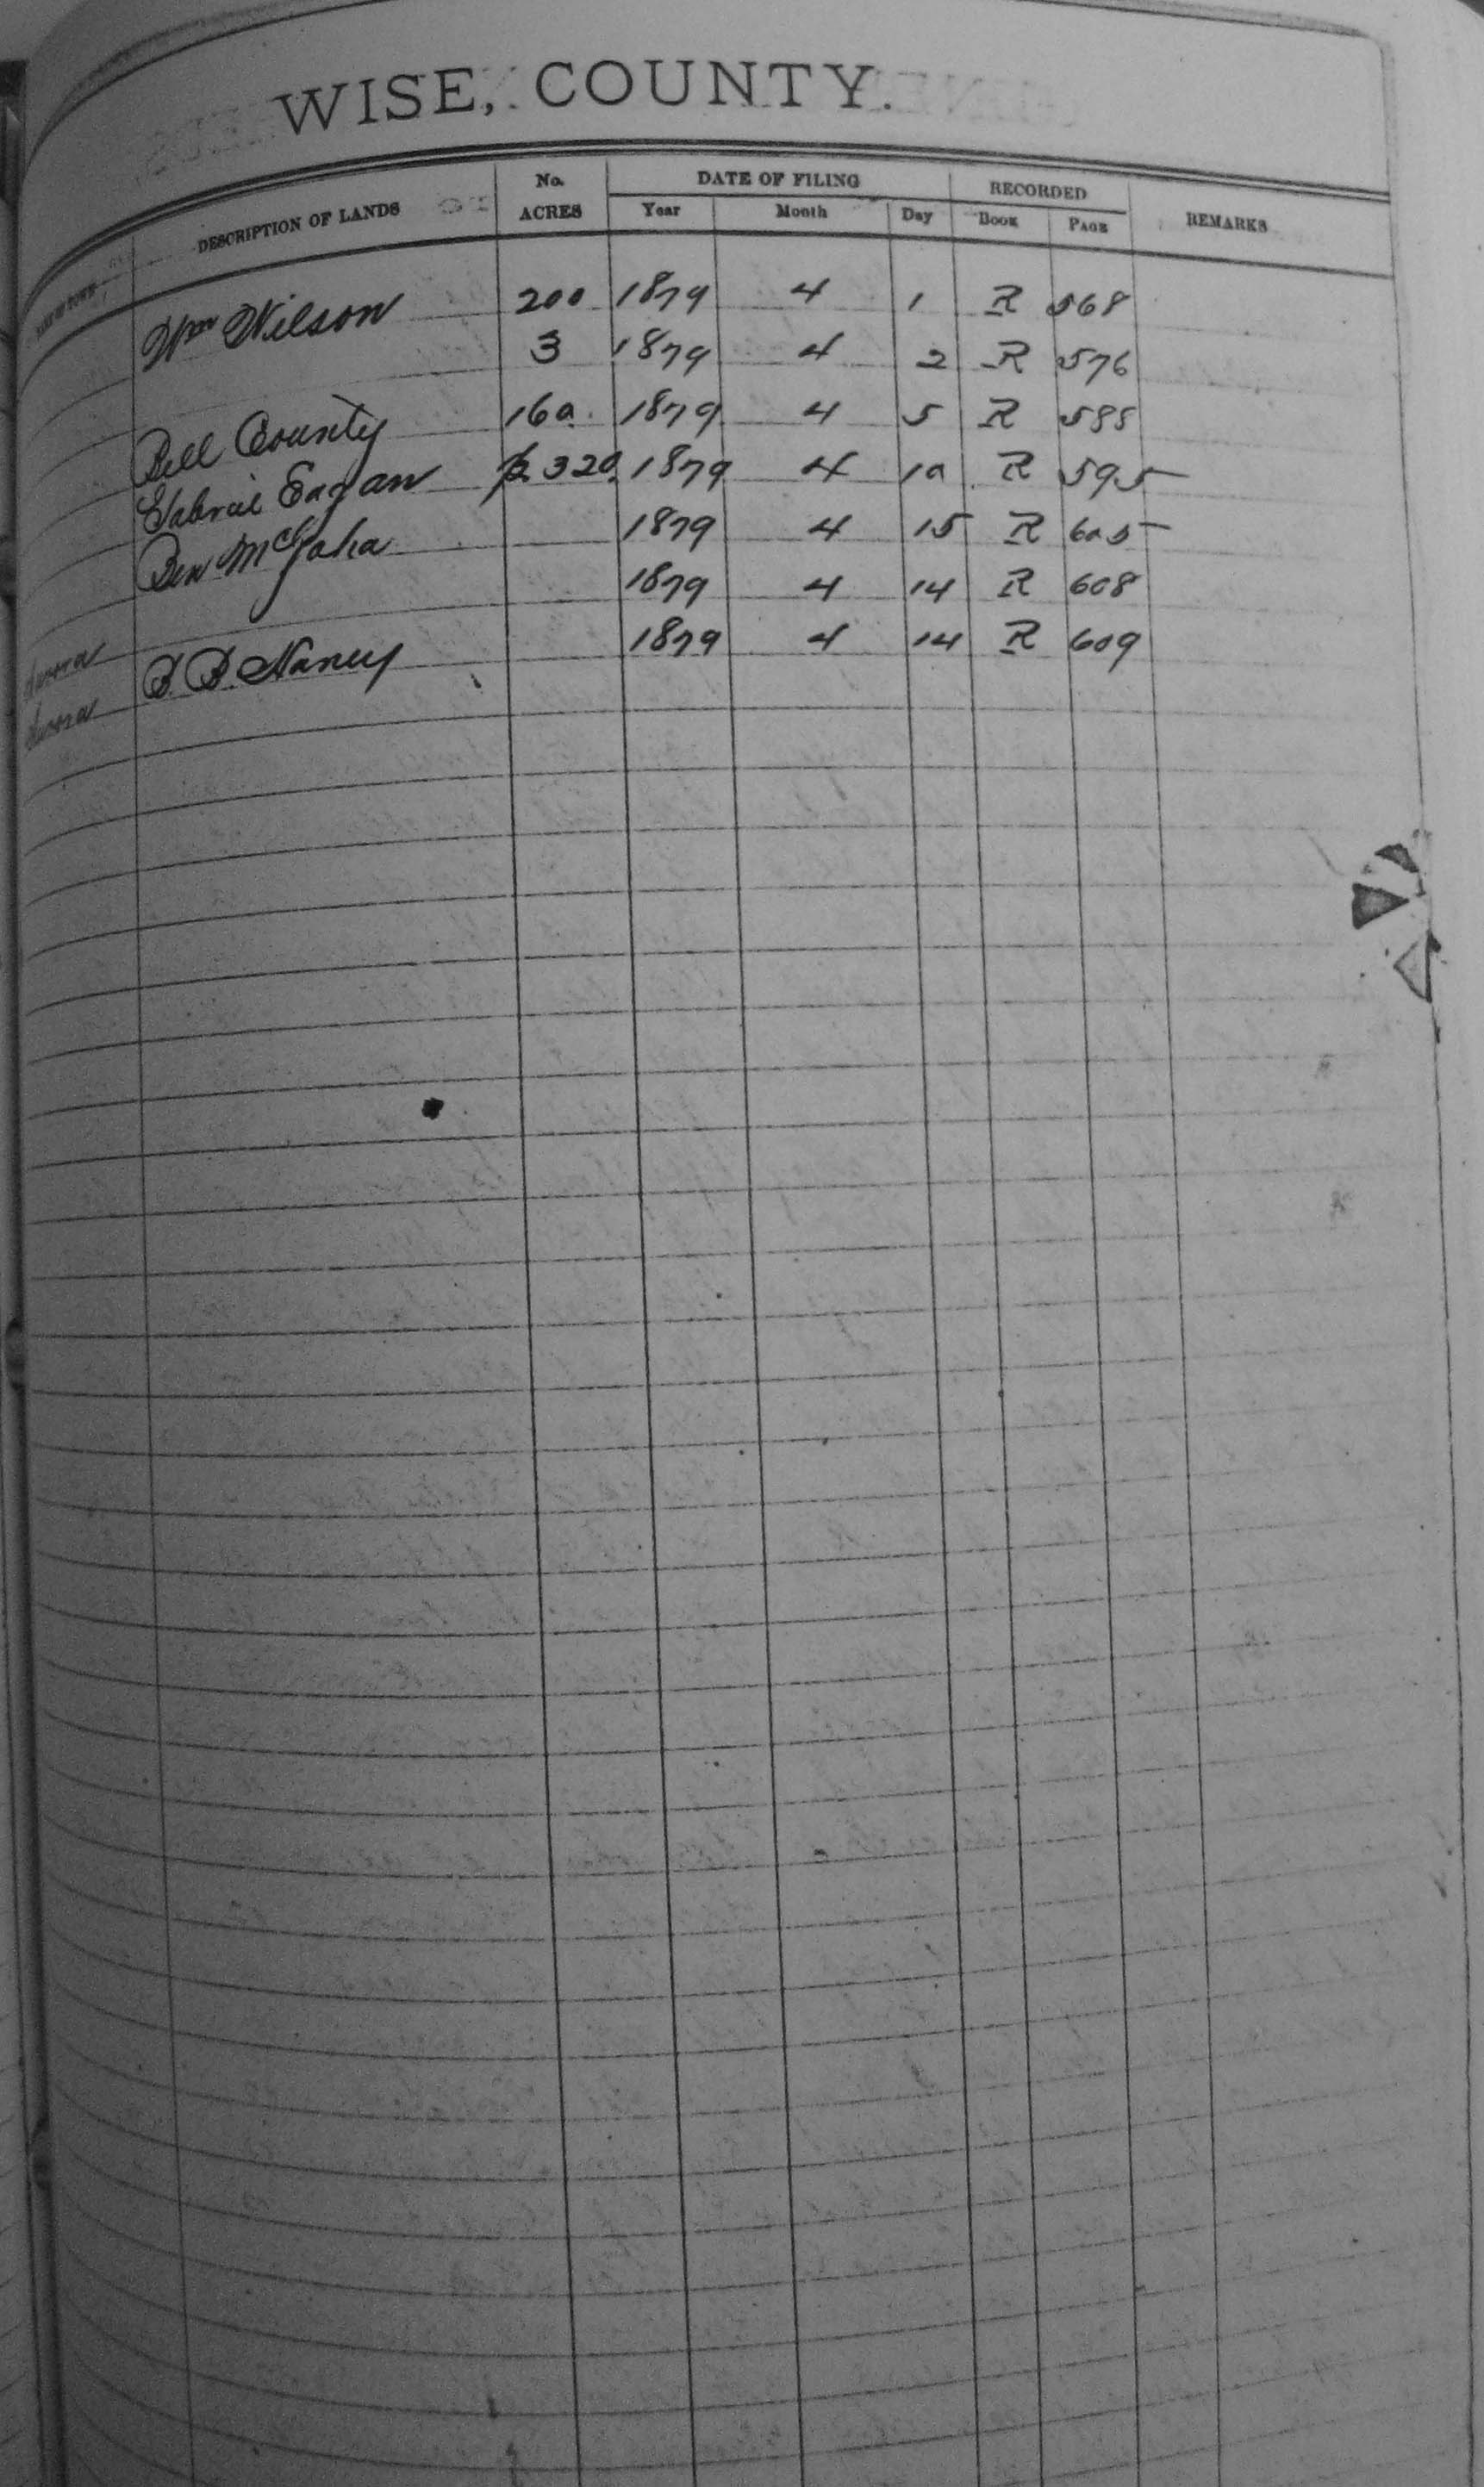 WISE, COUNTY.
DESCRIPTION OF LANDS No. ACRES DATE OF FILING Year Month Day RECORDED BOOK PAGE REMARKS
Wm Wilson 200 1879 4 1 R 568
3 1879 4 2 R 576
Bell County 160 1879 4 5 R 588
Gabriel Eagan 320 1879 4 10 R 595
Ben McGaha 1879 4 15 R 605
1879 4 14 R 608
Aurora B B Haney 1879 4 14 R 609
Aurora